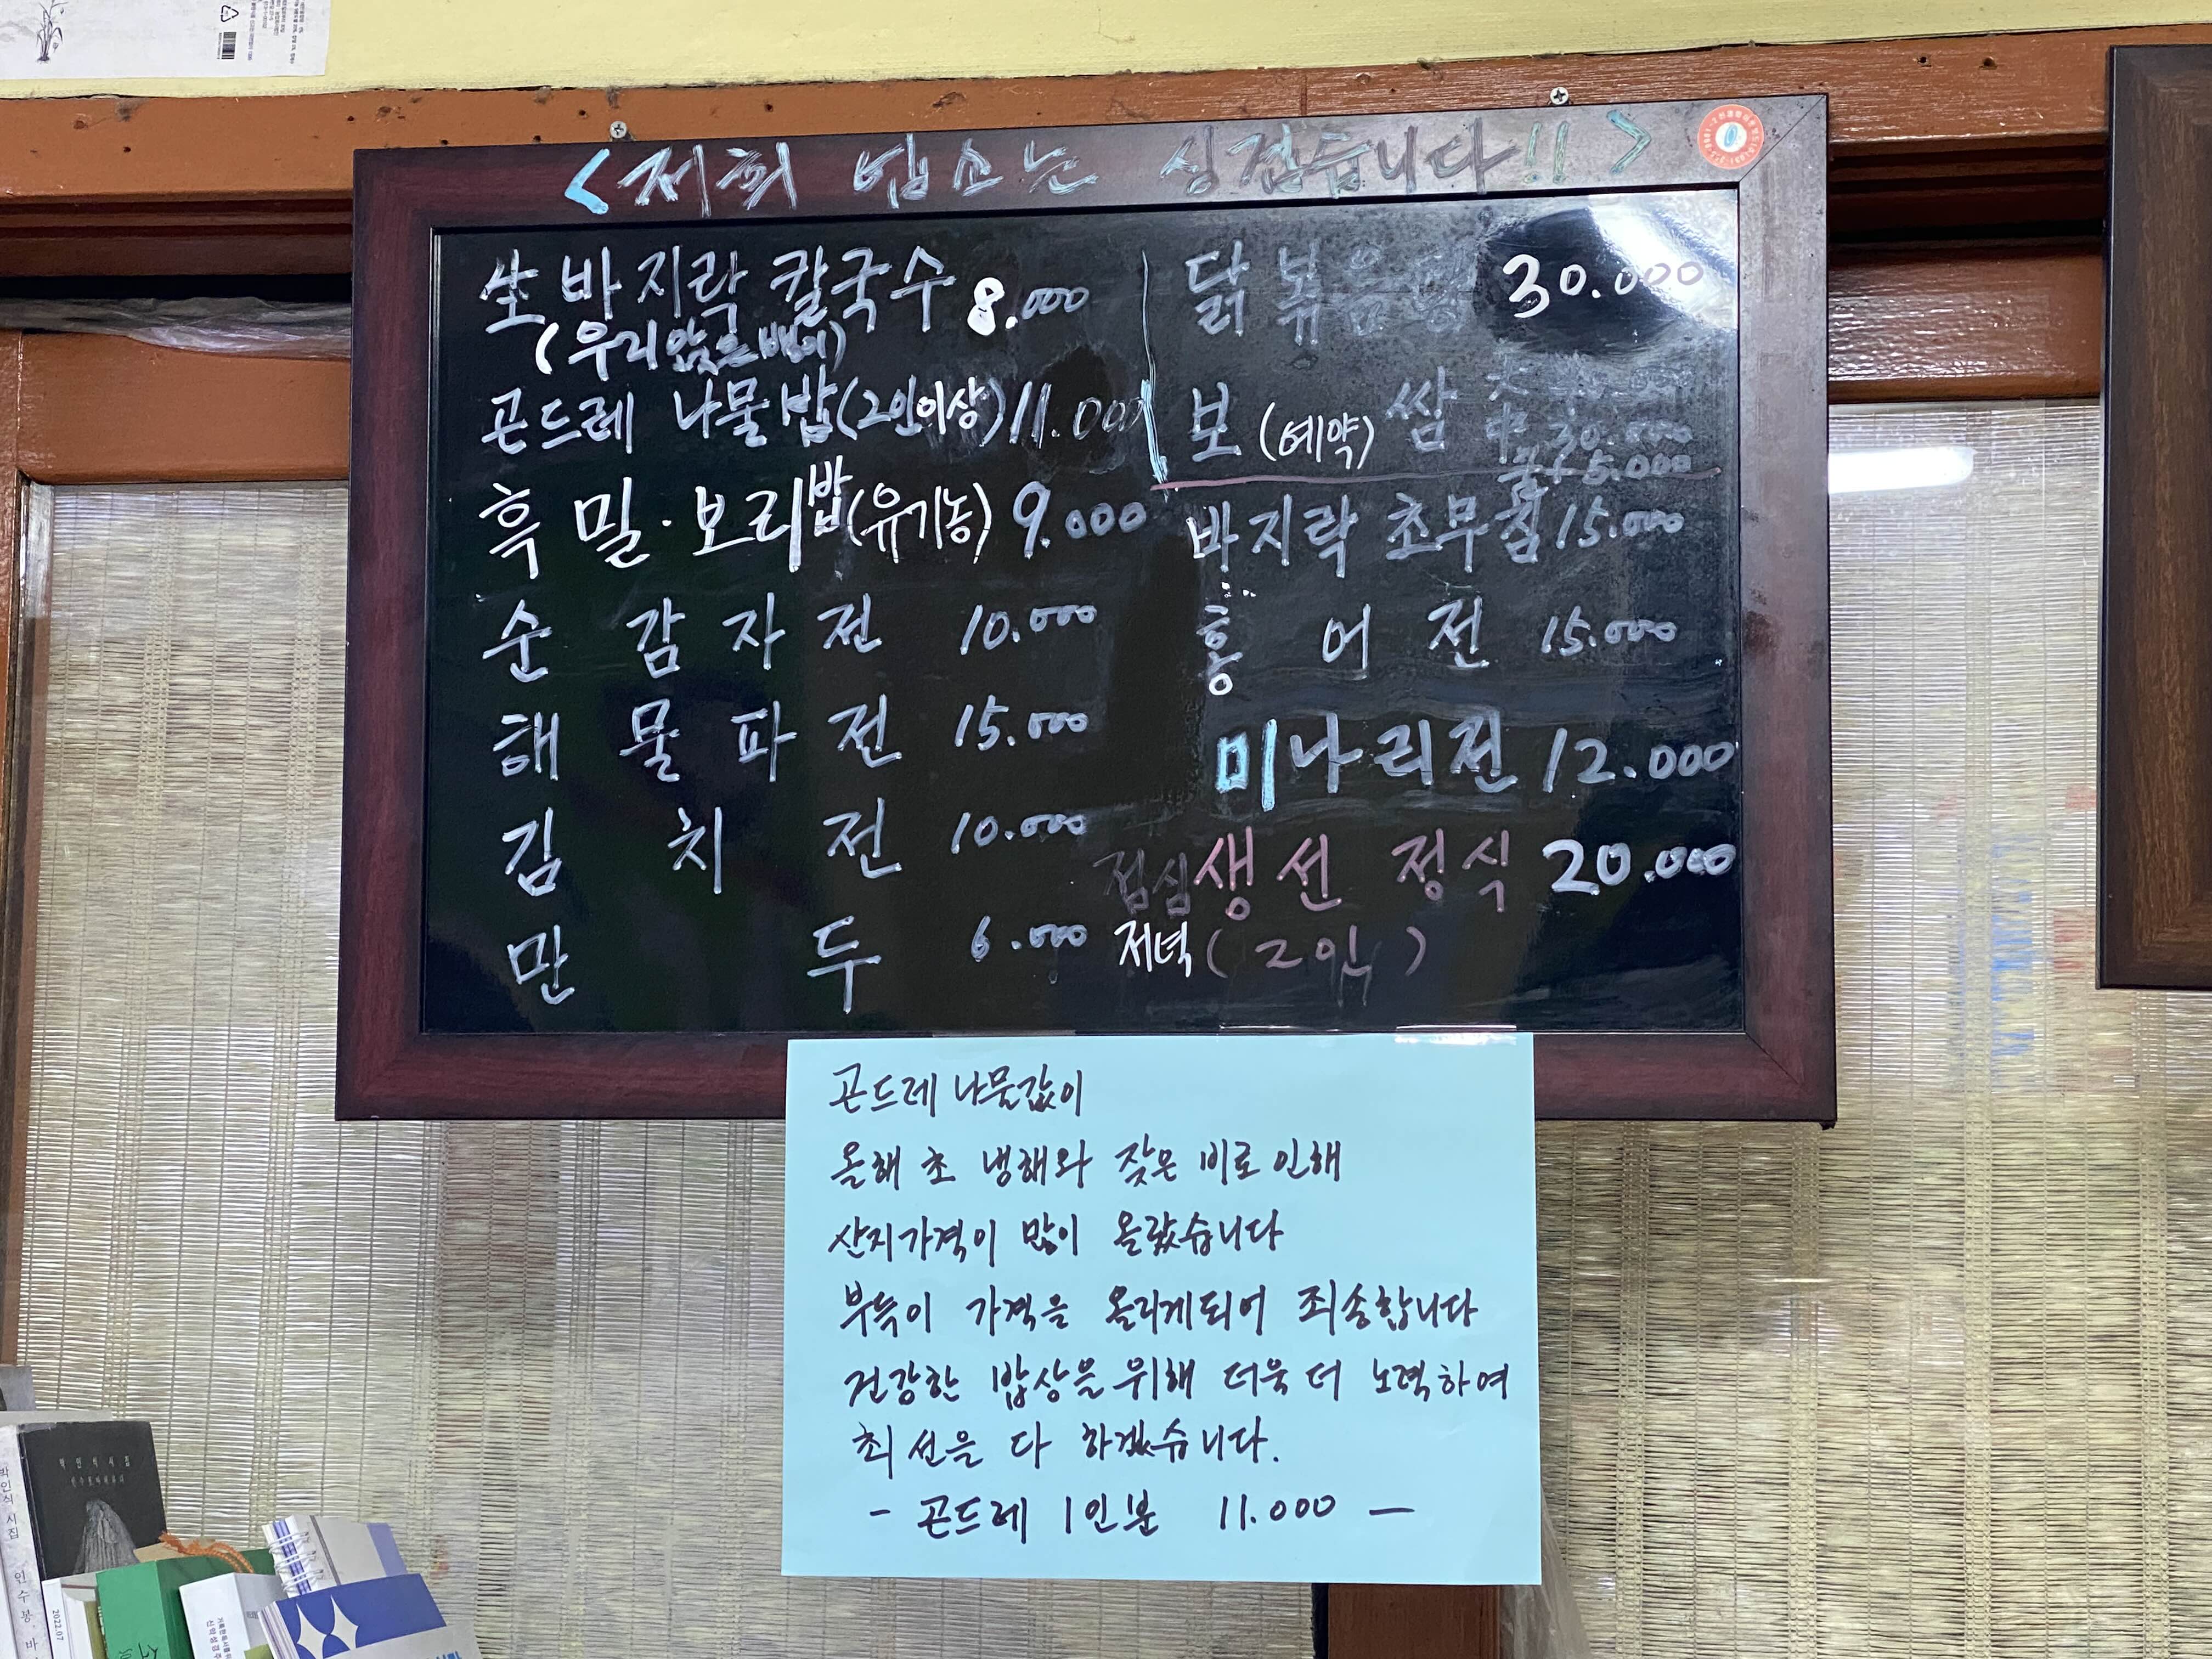 <저희 업소는 싱겁습니다!!>
生바지락 칼국수 8.000
(우리 앉은뱅이)
곤드레 나물밥(2인이상) 11.000
흑밀·보리밥(유기농) 9.000
순감자전 10.000
해물파전 15.000
김치전 10.000
만두 6.000
닭볶음탕 30.000
보(예약)쌈 大
中 30.000
5.000
바지락 초무침 15.000
홍어전 15.000
미나리전 12.000
점심 생선 정식 20.000
저녁 (2인)
곤드레 나물값이
올해 초 냉해와 잦은 비로 인해
산지가격이 많이 올랐습니다
부득이 가격을 올리게되어 죄송합니다
건강한 밥상을 위해 더욱 더 노력하여
최선을 다 하겠습니다.
- 곤드레 1인분 11.000 -
박인식 시집
박인식 시집
인수봉, 바
2022.07